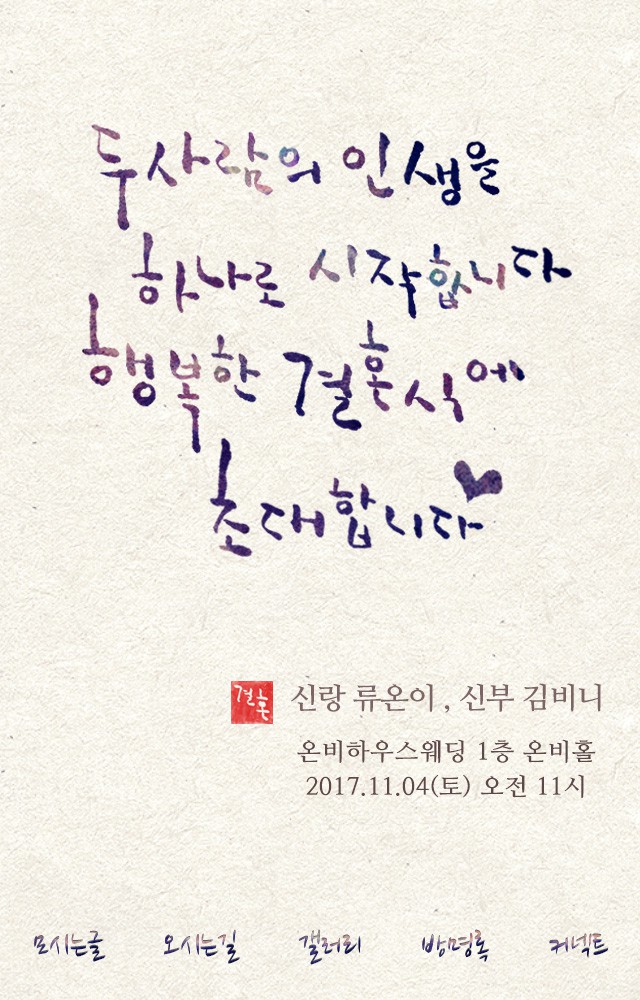 두사람의 인생을
하나로 시작합니다
행복한 결혼식에
초대합니다
결혼
신랑 류온이, 신부 김비니
온비하우스웨딩 1층 온비홀
2017.11.04(토) 오전 11시
모시는글 오시는길 갤러리 방명록 커넥트